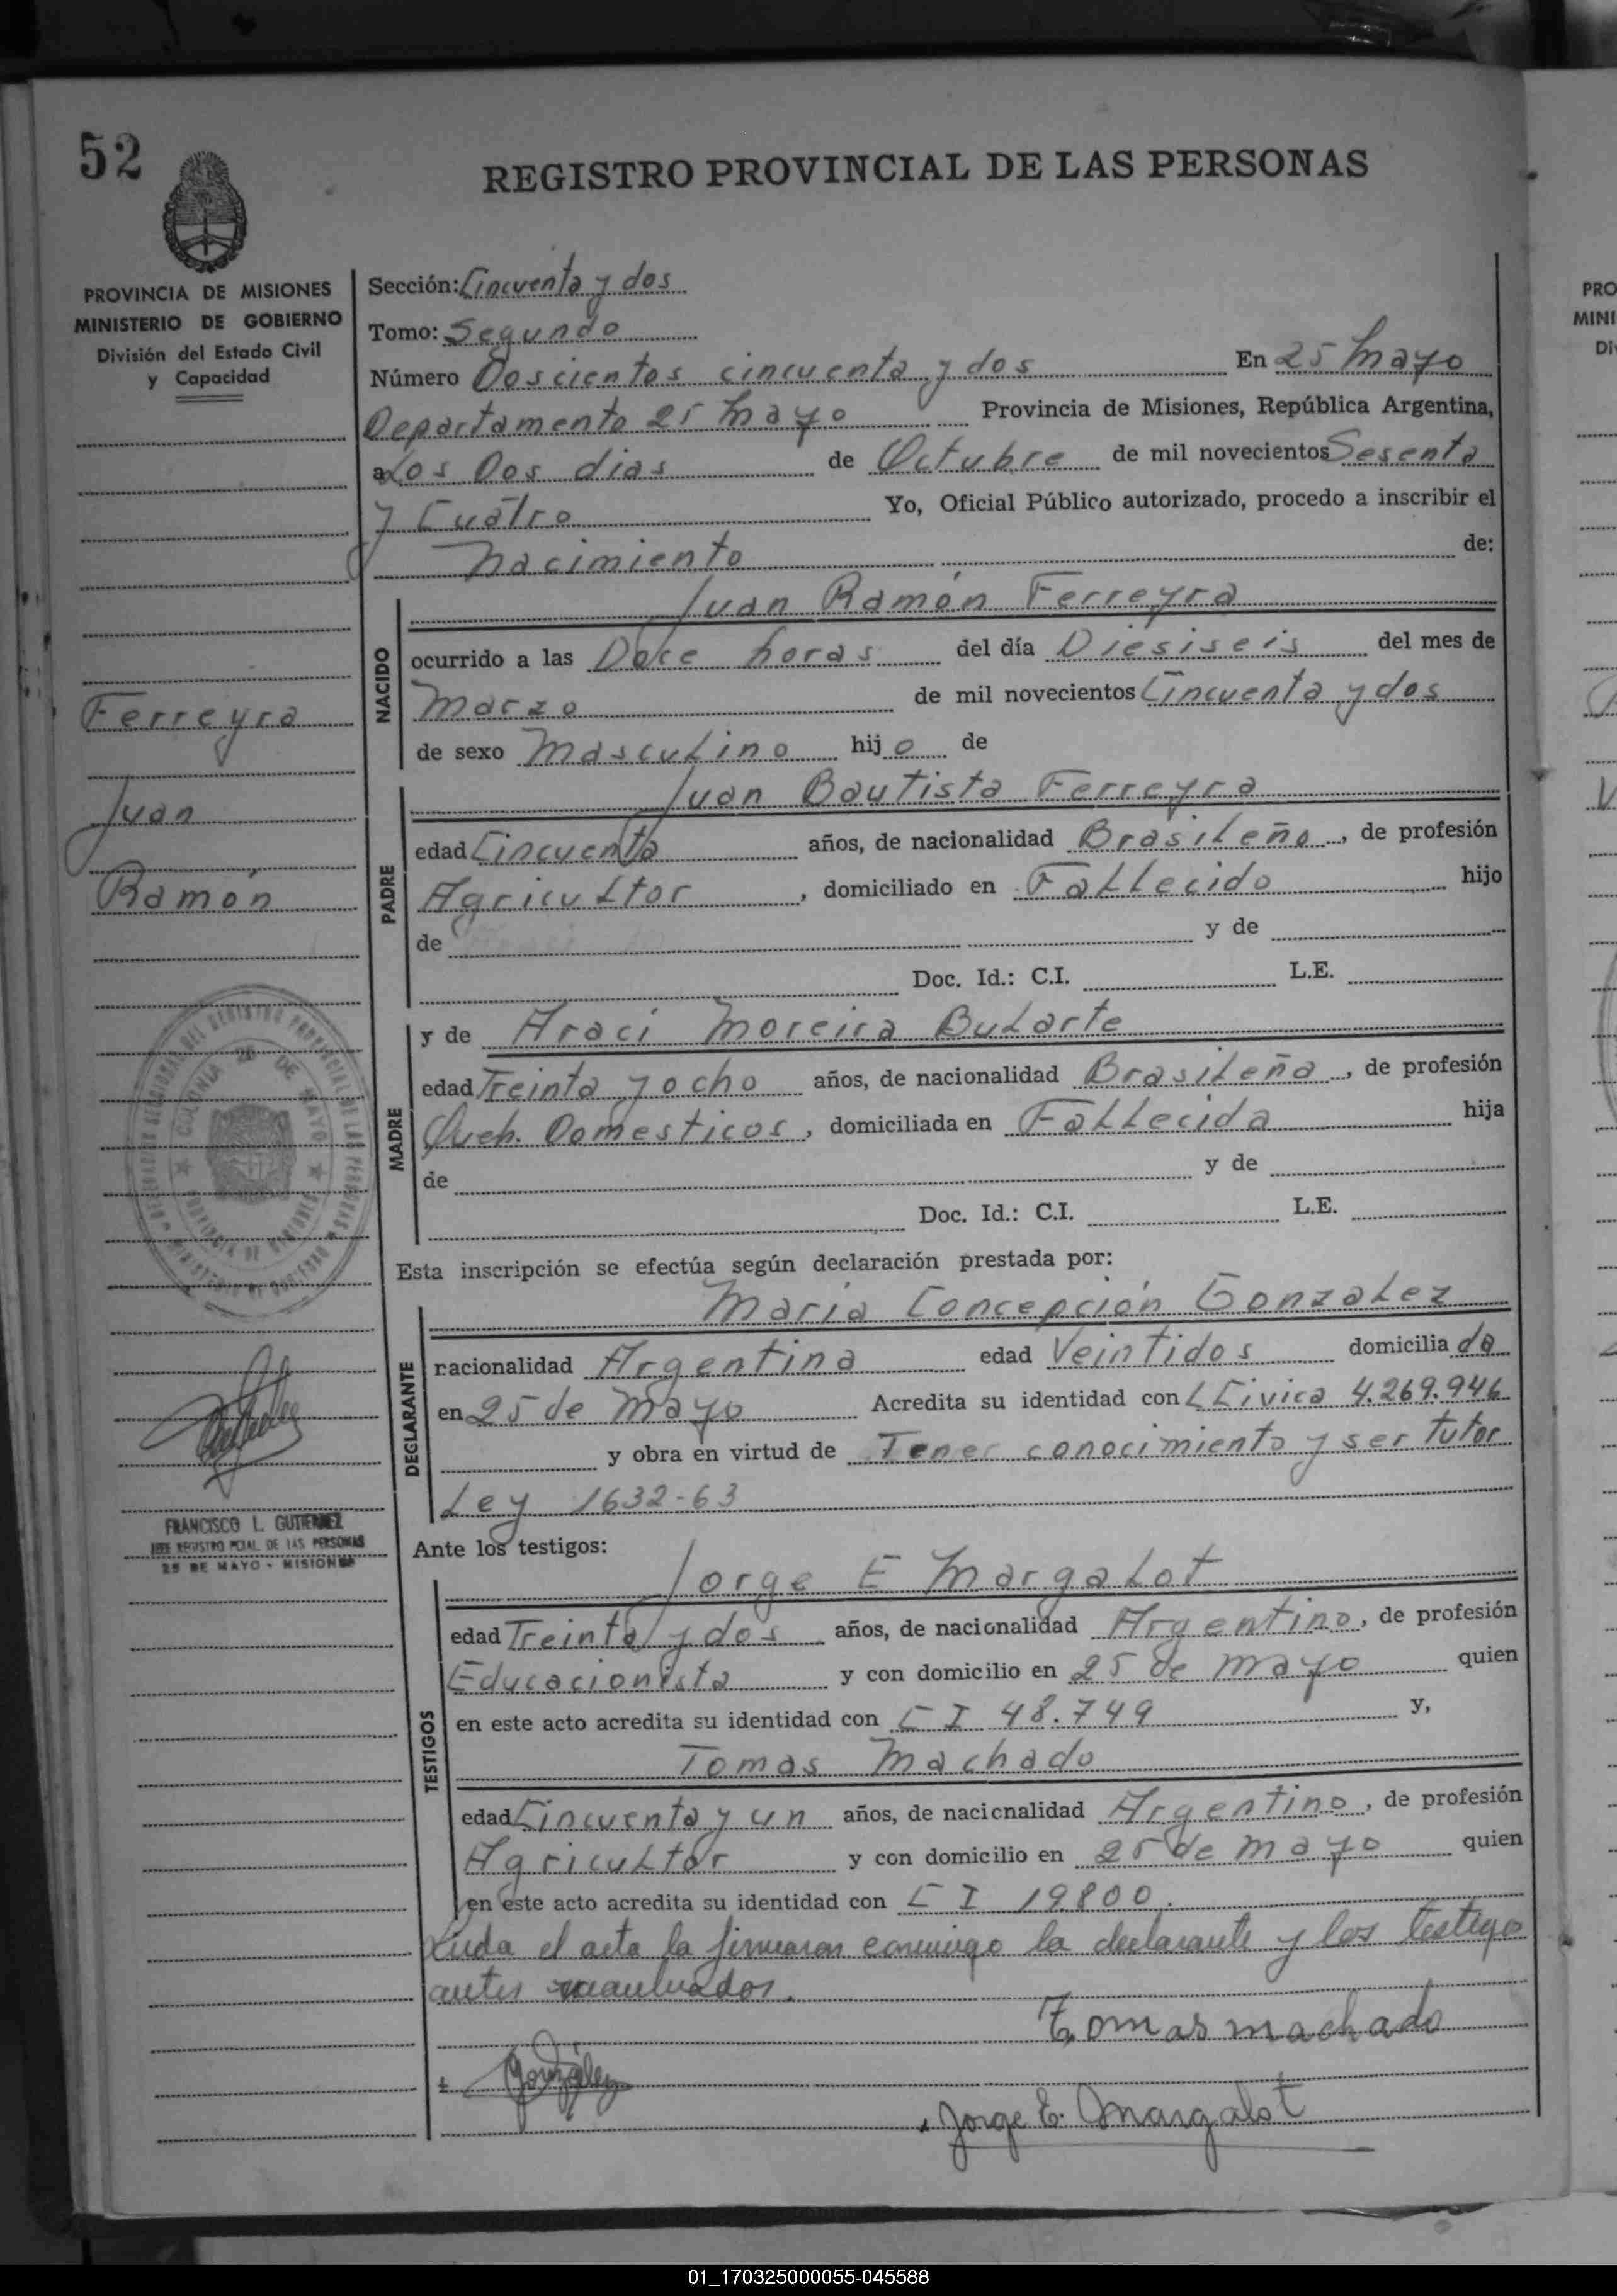 52
REGISTRO PROVINCIAL DE LAS PERSONAS
PROVINCIA DE MISIONES
MINISTERIO DE GOBIERNO
División del Estado Civil
y Capacidad
Ferreyra
Juan
Ramón
FRANCISCO L. GUTIERREZ
JEFE REGISTRO PCIAL. DE LAS PERSONAS
25 DE MAYO - MISIONES
Sección: Cincuenta y dos
Tomo: Segundo
Número Doscientos cincuenta y dos En 25 Mayo
Departamento 25 Mayo Provincia de Misiones, República Argentina,
a Los Dos dias de Octubre de mil novecientos Sesenta
y Cuatro Yo, Oficial Público autorizado, procedo a inscribir el
Nacimiento de:
NACIDO
Juan Ramón Ferreyra
ocurrido a las Doce horas del día Diesiseis del mes de
Marzo de mil novecientos Cincuenta y dos
de sexo Masculino hijo de
PADRE
Juan Bautista Ferreyra
edad Cincuenta años, de nacionalidad Brasileño, de profesión
Agricultor, domiciliado en Fallecido hijo
de y de
Doc. Id.: C.I. L.E.
MADRE
y de Araci Moreira Bularte
edad Treinta y ocho años, de nacionalidad Brasileña, de profesión
Queh. Domesticos, domiciliada en Fallecida hija
de y de
Doc. Id.: C.I. L.E.
Esta inscripción se efectúa según declaración prestada por:
DECLARANTE
Maria Concepción Gonzalez
nacionalidad Argentina edad Veintidos domiciliada
en 25 de Mayo Acredita su identidad con L Civica 4.269.946
y obra en virtud de Tener conocimiento y ser tutor
Ley 1632-63
Ante los testigos:
TESTIGOS
Jorge E Margalot
edad Treinta y dos años, de nacionalidad Argentino, de profesión
Educacionista y con domicilio en 25 de Mayo quien
en este acto acredita su identidad con C I 48.749 y,
Tomas Machado
edad Cincuenta y un años, de nacionalidad Argentino, de profesión
Agricultor y con domicilio en 25 de Mayo quien
en este acto acredita su identidad con C I 19.800.
Leida el acta la firmaron conmigo la declarante y los testigo
antes
Tomas machado
González
Jorge E. Margalot
PRO
MINI
Di
01_170325000055-045588